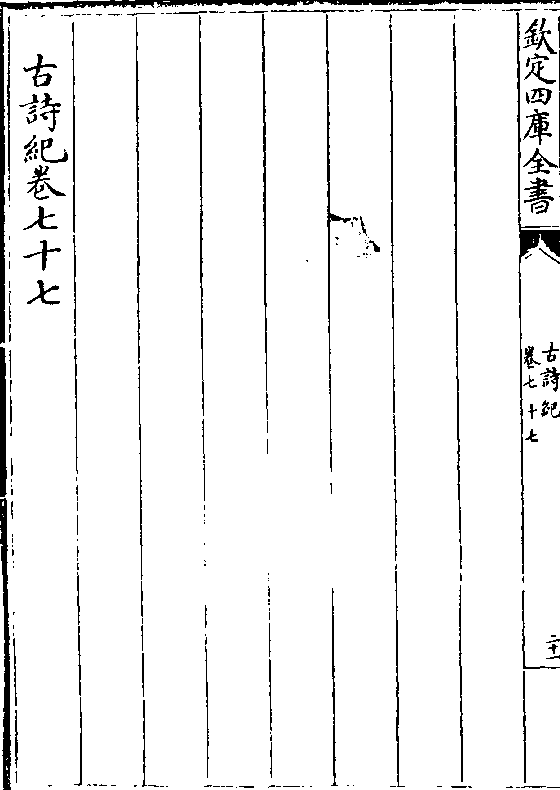 欽定四庫全書
古詩紀
卷七十七
二十一
古詩紀卷七十七